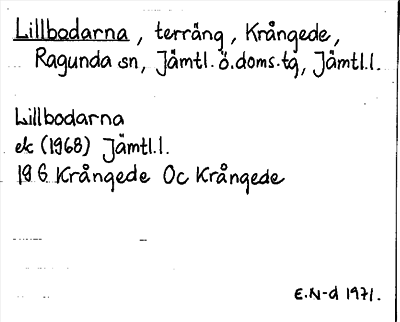 Lillbodarna, terräng, Krångede,
Ragunda sn, Jämtl. ö. doms. tg, Jämtl. l.
Lillbodarna
ek (1968) Jämtl. l.
19 G Krångede Oc Krångede
E. N-d 1971.